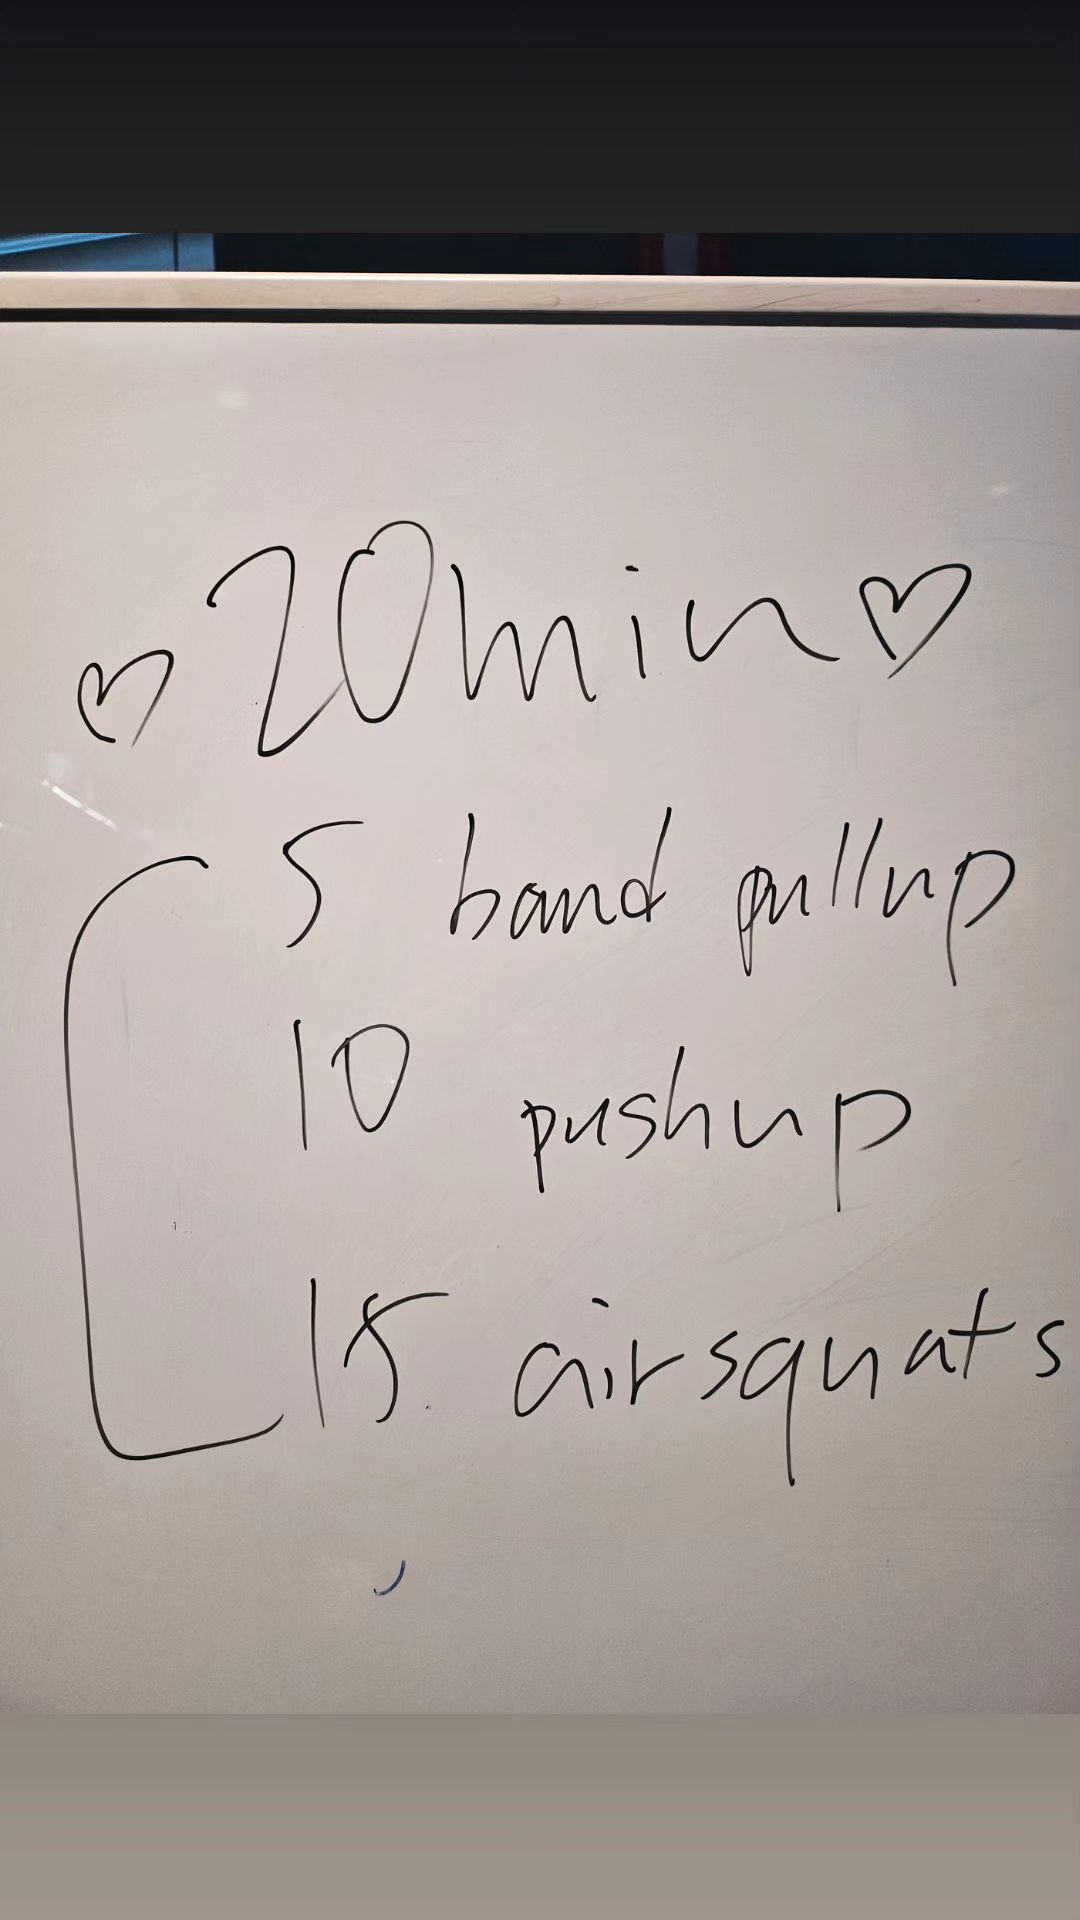 ♡ 20min ♡
5 band pullup
10 pushup
15 airsquats